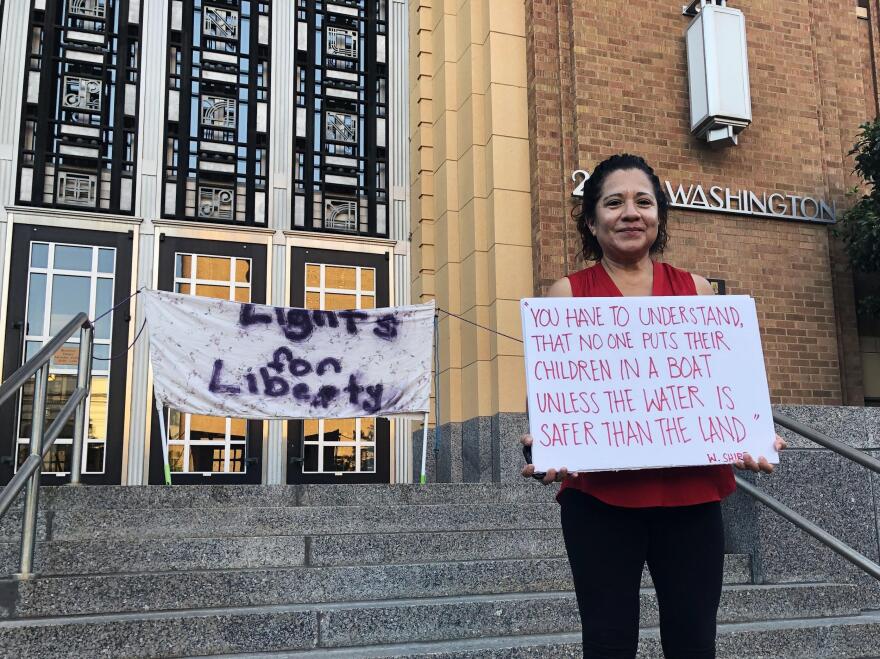 Lights
for
Liberty
2 WASHINGTON
"YOU HAVE TO UNDERSTAND,
THAT NO ONE PUTS THEIR
CHILDREN IN A BOAT
UNLESS THE WATER IS
SAFER THAN THE LAND"
W. SHIRE